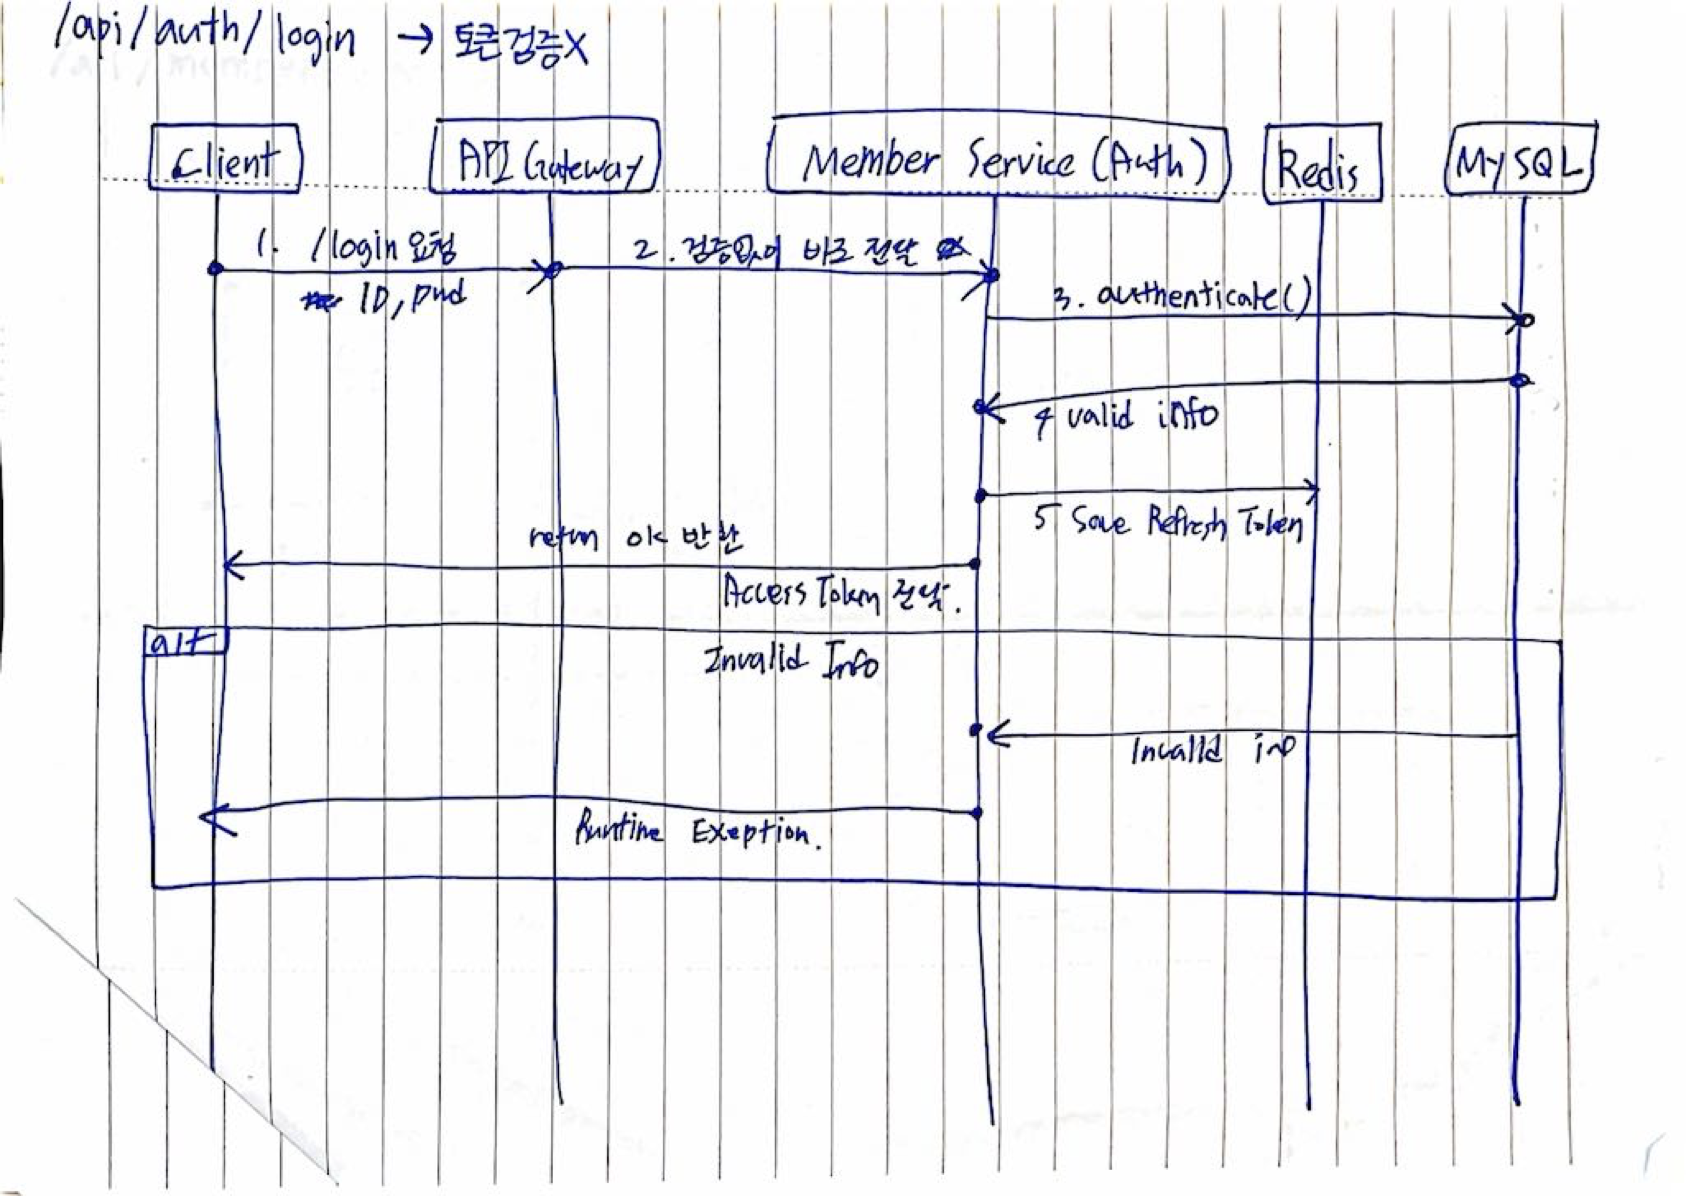 /api/auth/login → 토큰검증X
Client
API Gateway
Member Service (Auth)
Redis
MySQL
1. /login 요청
ID, pwd
2. 검증없이 바로 전달
3. authenticate()
4 valid info
5 Save Refresh Token
return ok 반환
Access Token 전달.
alt
Invalid Info
Invalid info
Runtime Exeption.